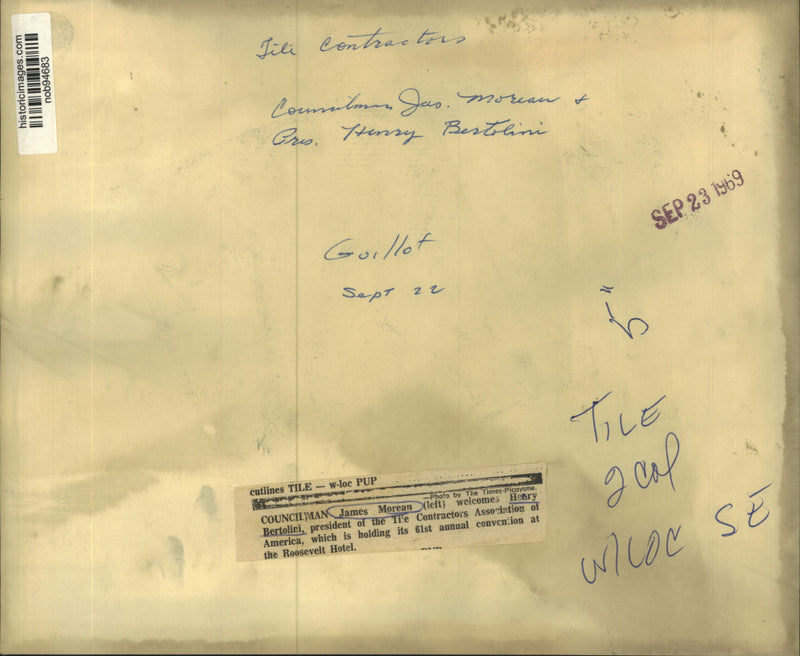 historicimages.com
nob94683
Tile Contractors
Councilman Jas. Moreau &
Pres. Henry Bertolini
SEP 23 1969
Guillot
Sept 22
5"
TILE
2 col
W/LOC SE
cutlines TILE — w-loc PUP
—Photo by The Times-Picayune.
COUNCILMAN James Moreau (left) welcomes Henry
Bertolini, president of the Tile Contractors Association of
America, which is holding its 61st annual convention at
the Roosevelt Hotel.
PUP